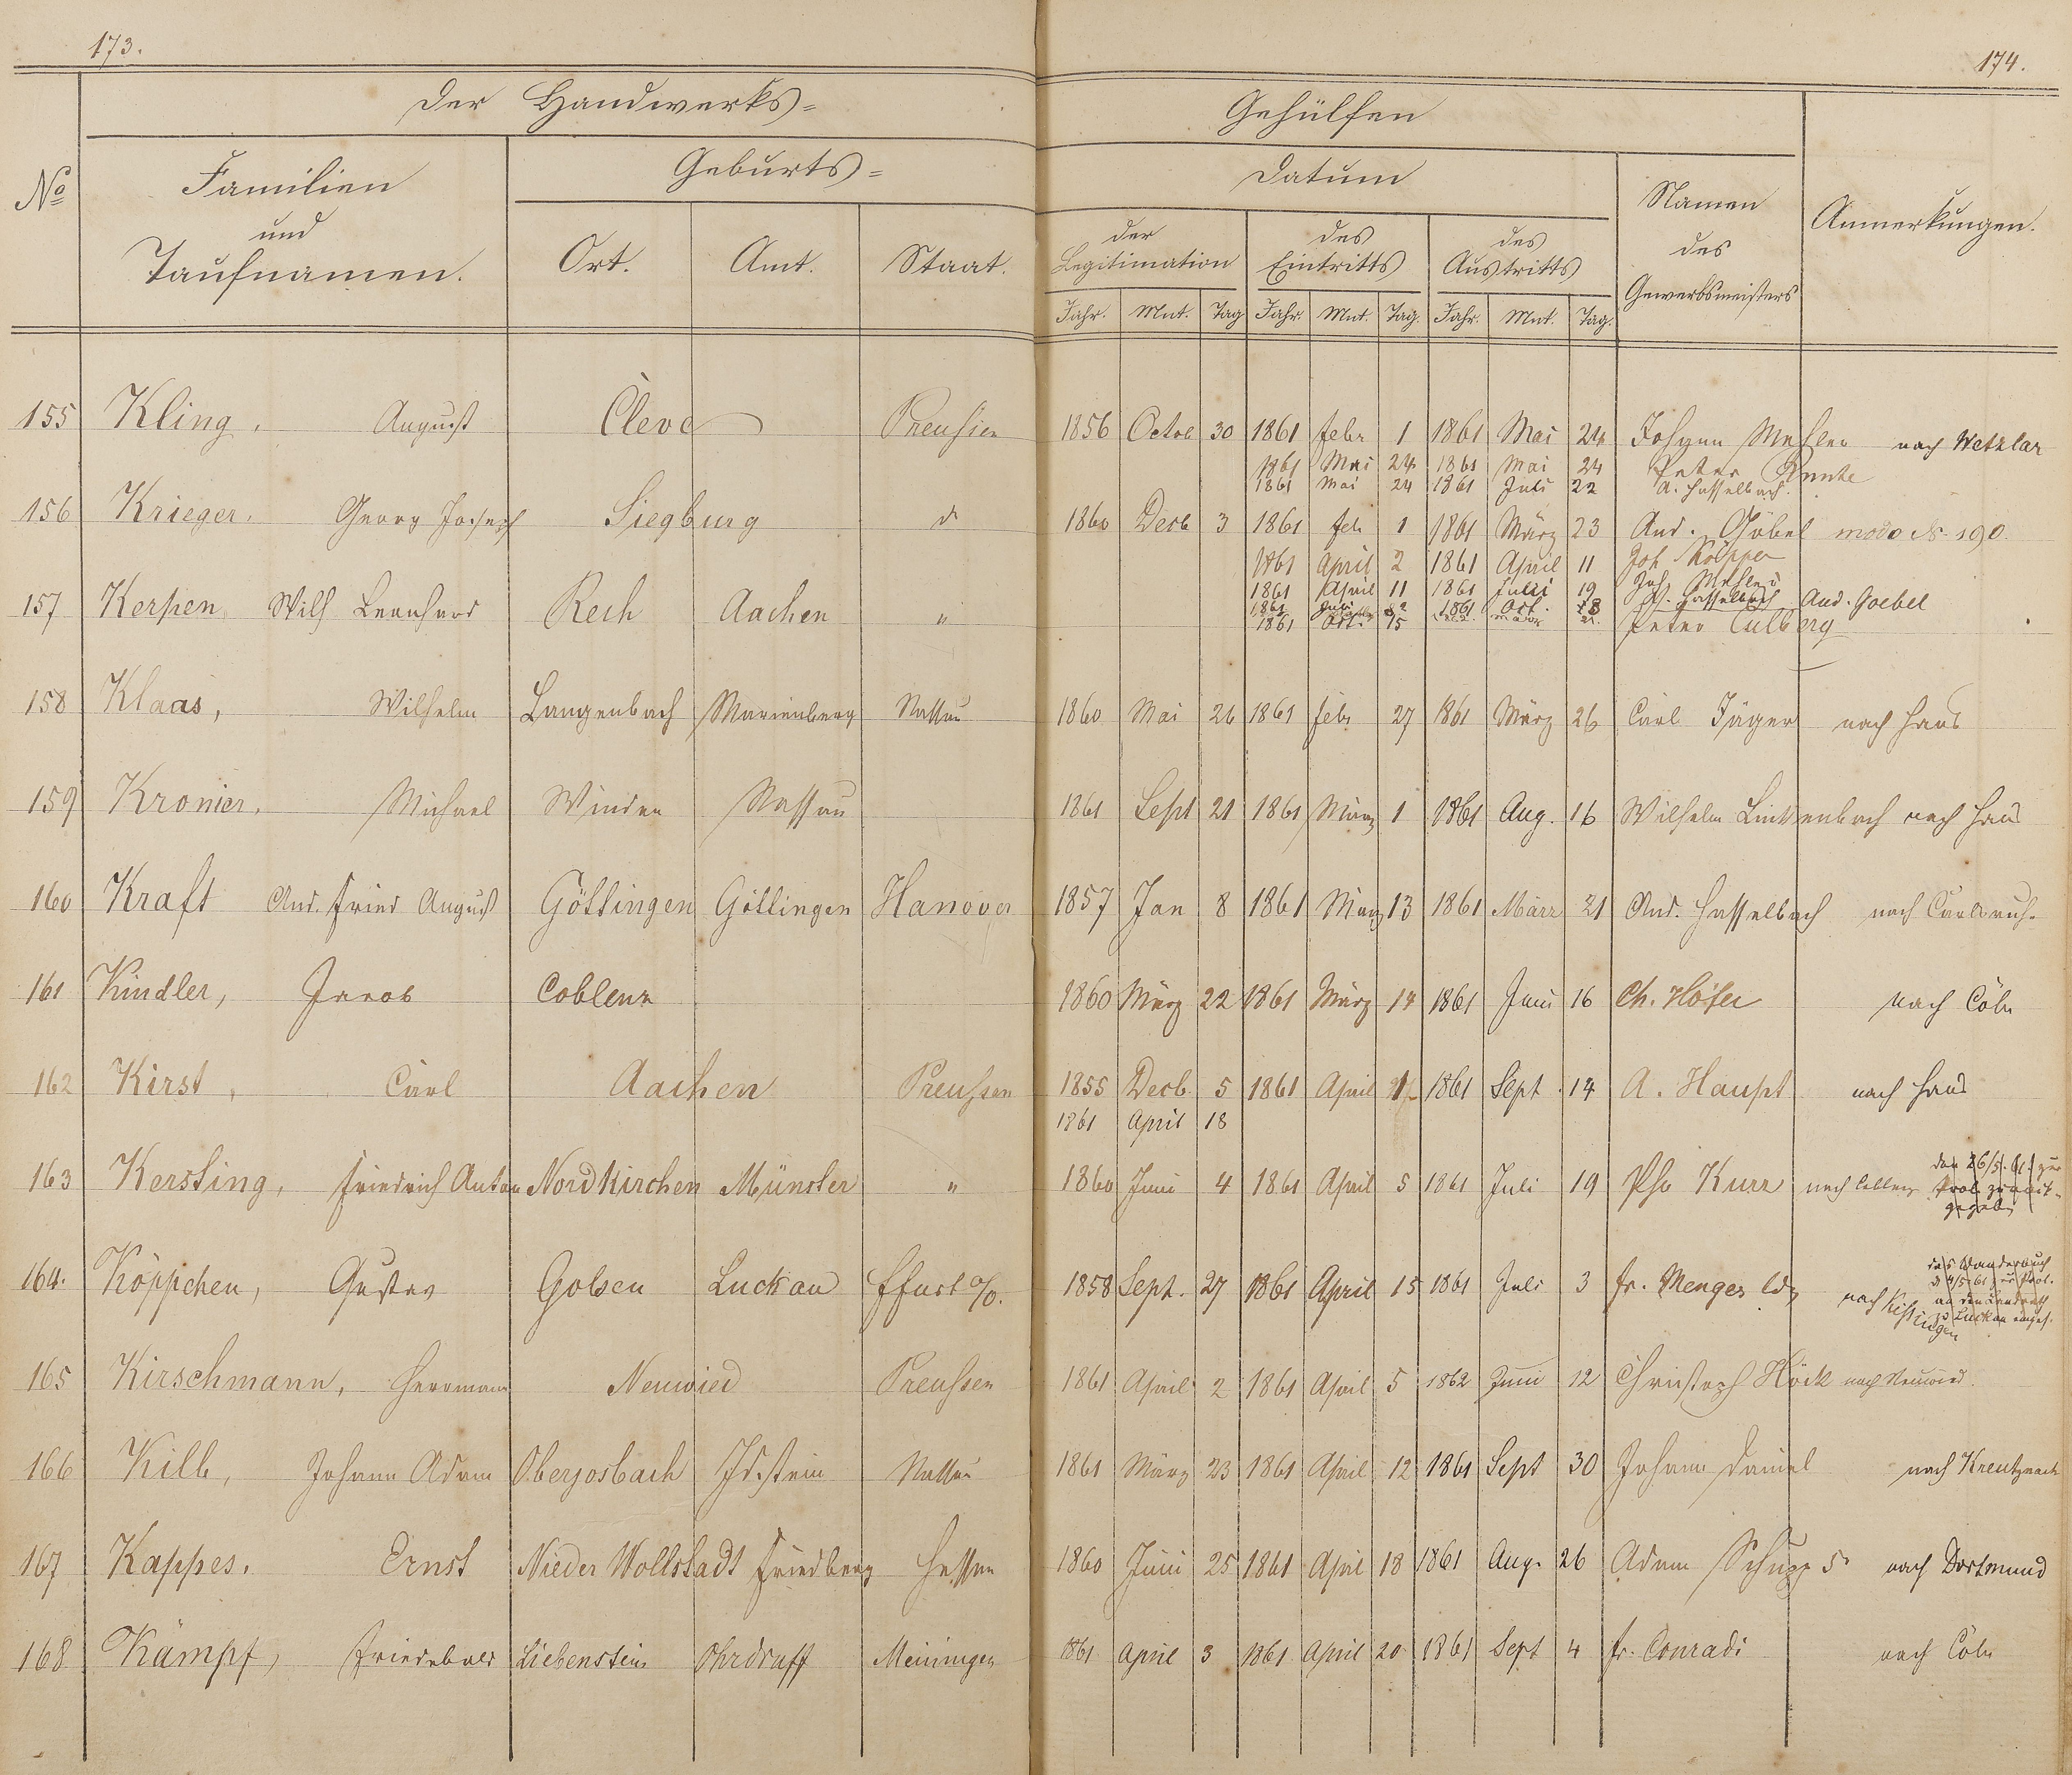 173.
174.
Der Handwerks=
Gehülfen
No
Familien
und
Taufnamen.
Geburts=
Ort.
Amt.
Staat.
Datum
der
Legitimation
des
Eintritts
des
Austritts
Jahr. Mnt. Tag Jahr. Mnt. Tag. Jahr. Mnt. Tag.
Namen
des
Gewerbsmeisters
Anmerkungen.
155 Kling, August Cleve Preußen 1856 Octob 30 1861 Febr 1 1861 Mai 24 Johann Mehler nach Wetzlar
1861 Mai 24 1861 Mai 24 Peter
1861 Mai 24 1861 Juli 22 A. Hasselbach
156 Krieger, Georg Joseph Siegburg d 1860 Decb 3 1861 Feb 1 1861 März 23 And. Göbel modo N. 190.
1861 April 2 1861 April 11 Joh Köpper
1861 April 11 1861 Juli 19 Joh. Mehler
157 Kerpen, Wilh Leonhard Rech Aachen " 1861 Juli 1861 Oct. 18 A. Hasselbach And. Goebel
1861 Oct. 15 Peter Culberg
158 Klaas, Wilhelm Langenbach Marienberg Nassau 1860 Mai 26 1861 Febr 27 1861 März 26 Carl Jäger nach Haus
159 Kronier, Michael Winden Nassau 1861 Sept 21 1861 März 1 1861 Aug. 16 Wilhelm Linkenbach nach Haus
160 Kraft And. Fried August Göttingen Göttingen Hanover 1857 Jan 8 1861 März 13 1861 März 21 And. Hasselbach nach Carlsruh.
161 Kindler, Jacob Coblenz 1860 März 22 1861 März 14 1861 Juni 16 Ch. Höfer nach Cöln
162 Kirst, Carl Aachen Preußen 1855 Decb. 5 1861 April 1 1861 Sept. 14 A. Haupt nach Haus
1861 April 18
163 Kersting, Friedrich Anton Nordkirchen Münster " 1860 Juni 4 1861 April 5 1861 Juli 19 Phs Kurr nach
den 26/5. 61. zur
gegeb.
164. Köppchen, Gustav Golsen Luckau Ffurt a/O. 1858 Sept. 27 1861 April 15 1861 Juli 3 Fr. Menges nach Kissingen
das Wanderbuch
d 4/5 61 zur
an den Landrath
zu Luckau
165 Kirschmann, Herrmann Neuwied Preußen 1861 April 2 1861 April 5 1862 Juni 12 Christoph Höck nach Neuwied.
166 Kilb, Johann Adam Oberjosbach Idstein Nassau 1861 März 23 1861 April 12 1861 Sept 30 Johann Daniel nach Kreutznach
167 Kappes, Ernst Nieder Wollstadt Friedberg Hessen 1860 Juni 25 1861 April 18 1861 Aug. 26 Adam Schupp nach Dortmund
168 Kämpf, Friedebald Liebenstein Ohrdruff Meiningen 1861 April 3 1861 April 20 1861 Sept 4 Fr. Conradi nach Cöln